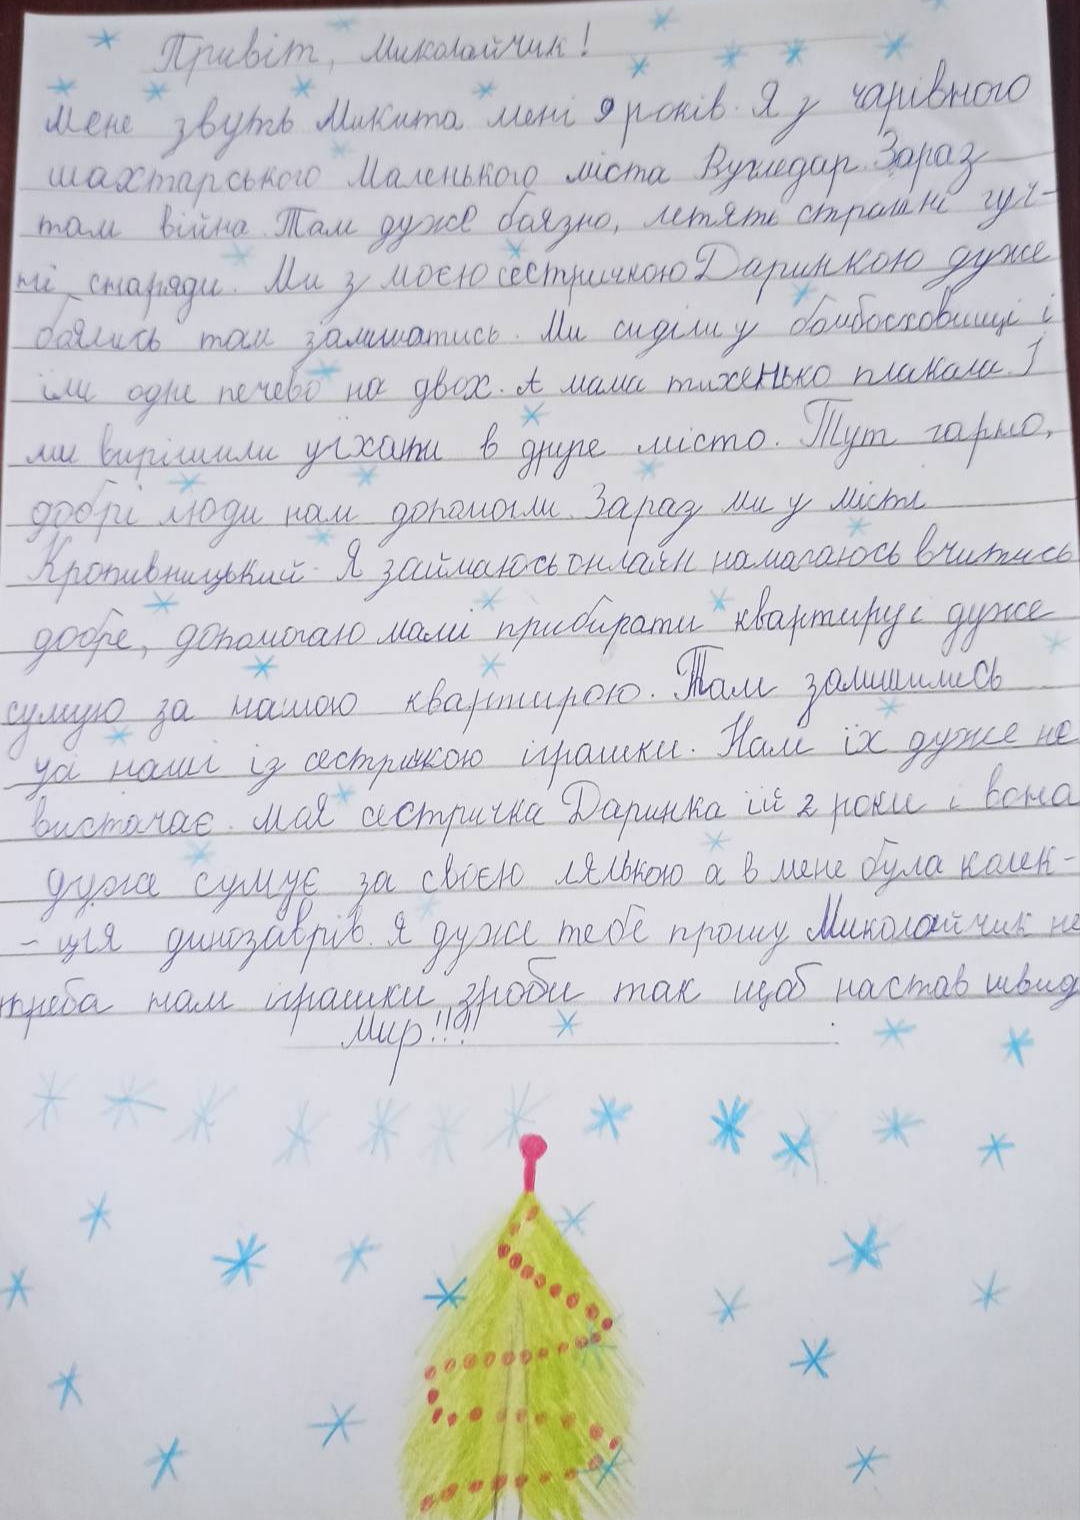 Привіт, Миколайчик!
Мене звуть Микита мені 9 років. Я з чарівного
шахтарського Маленького міста Вугледар. Зараз
там війна. Там дуже боязно, летять страшні гуч-
ні снаряди. Ми з моєю сестричкою Даринкою дуже
боялись там залишатись. Ми сиділи у бомбосховищі і
їли одне печево на двох. А мама тихенько плакала. І
ми вирішили уїхати в друге місто. Тут гарно,
добрі люди нам допомогли. Зараз ми у місті
Кропивницький. Я займаюсь онлайн намагаюсь вчитись
добре, допомогаю мамі прибирати квартиру і дуже
сумую за нашою квартирою. Там залишились
усі наші із сестричкою іграшки. Нам їх дуже не
вистачає. Моя сестричка Даринка їй 2 роки і вона
дуже сумує за своєю лялькою а в мене була колек-
- ція динозаврів. Я дуже тебе прошу Миколайчик не
треба нам іграшки зроби так щоб настав швид
Мир!!!!